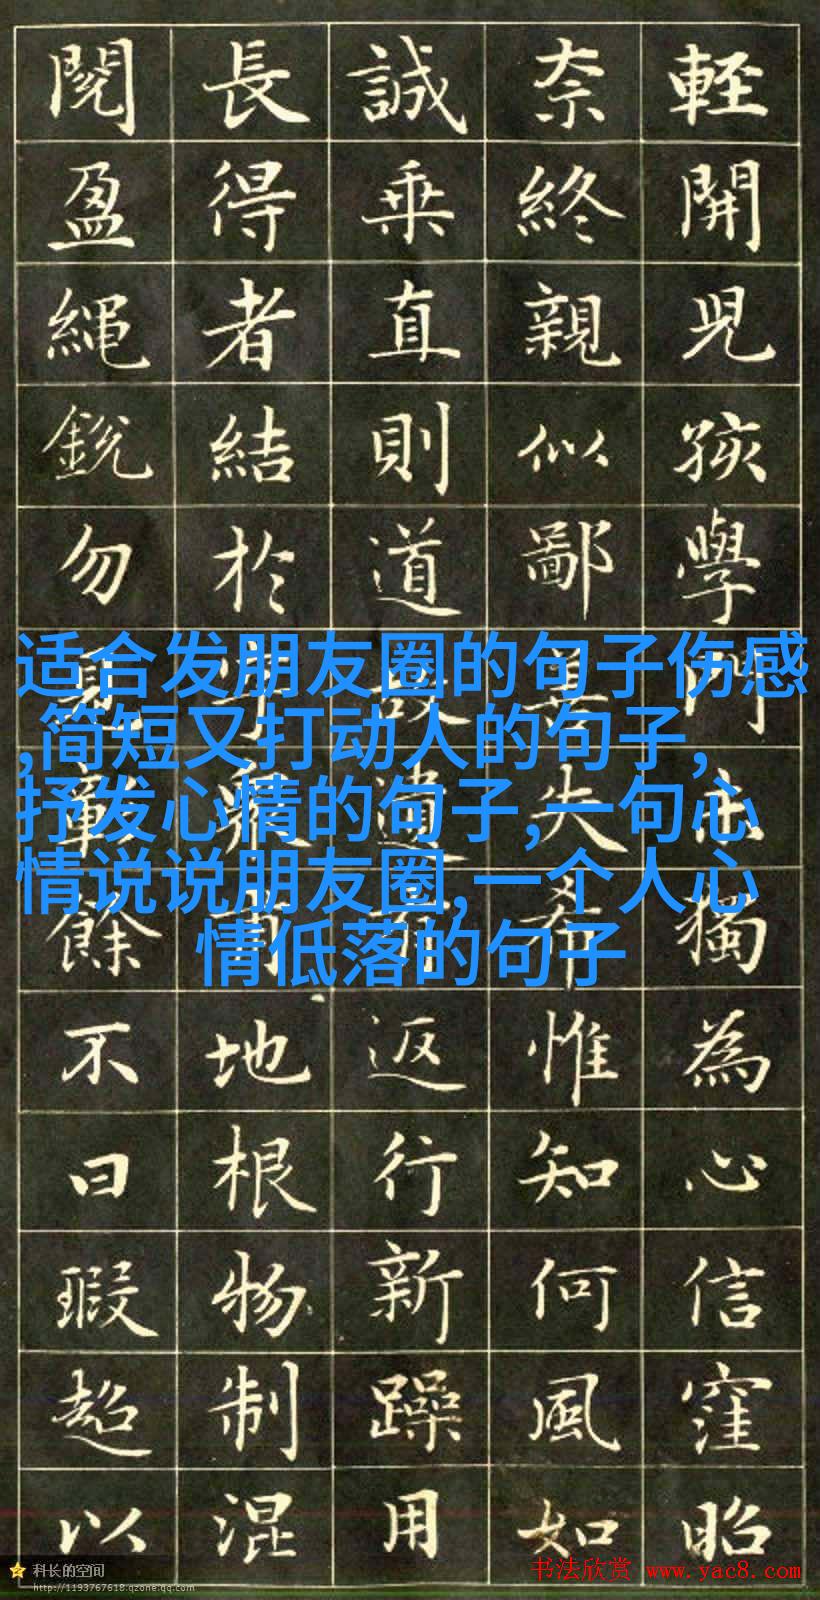 輕開兒孩學門獨為心信窪昭
奈終親似鄙善失希惟知何風如
誠乗直則道故遺返行新躁用
長得者結於地根物制混
閱盈繩銳勿餘不曰瑕超以
适合发朋友圈的句子伤感
,简短又打动人的句子,
抒发心情的句子,一句心
情说说朋友圈,一个人心
情低落的句子
科长的空间
http://1193767618.qzone.qq.com
书法欣赏 www.yac8.com